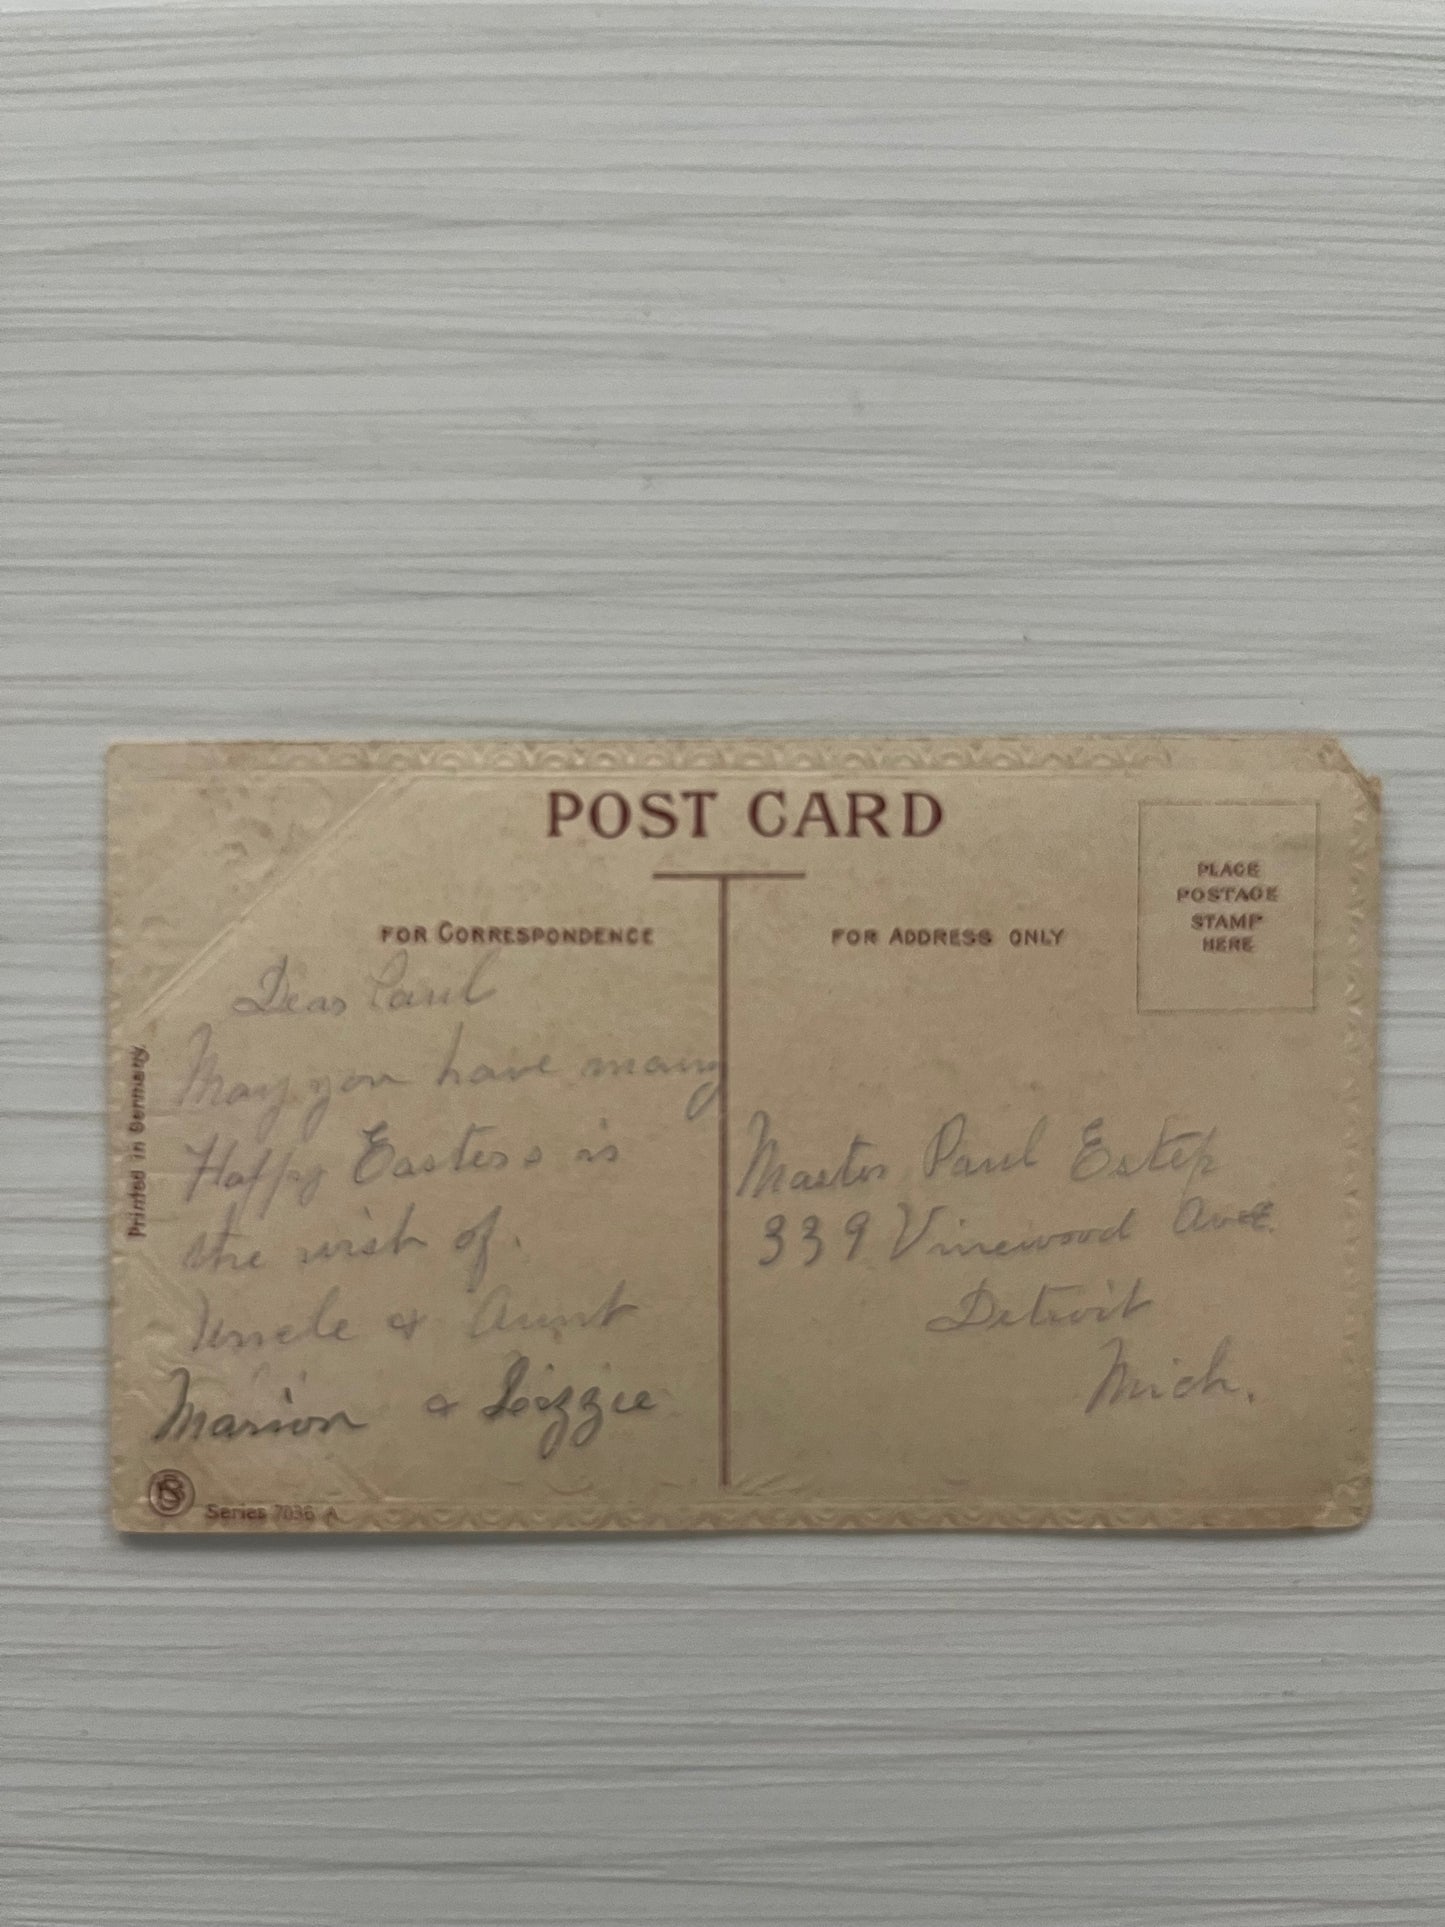 POST CARD
FOR CORRESPONDENCE
FOR ADDRESS ONLY
PLACE
POSTAGE
STAMP
HERE
Dear Paul
May you have many
Happy Easters is
the wish of.
Uncle & Aunt
Marion & Lizzie
Master Paul Estep
339 Vinewood Ave.
Detroit
Mich.
Printed in Germany.
Series 7036 A